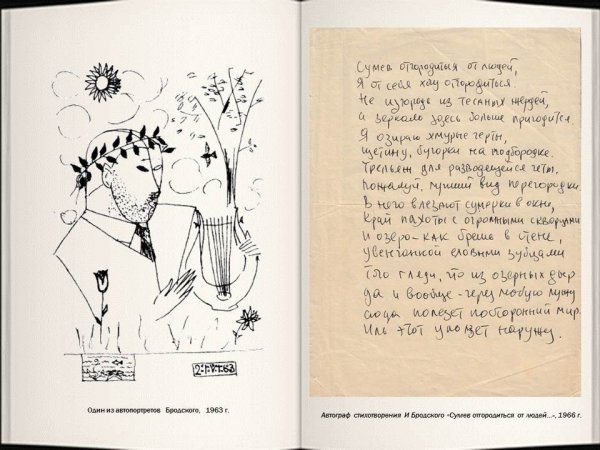 Один из автопортретов Бродского, 1963 г.
Сумев отгородиться от людей,
Я от себя хочу отгородиться.
Не изгородь из тесаных жердей,
а зеркало здесь больше пригодится.
Я озираю хмурые черты,
щетину, бугорки на подбородке.
Трельяж для разводящейся четы,
пожалуй, лучший вид перегородки.
В него влезают сумерки в окне,
край пахоты с огромными скворцами
И озеро – как брешь в стене,
увенчанной еловыми зубцами
Того гляди, что из озерных дыр
да и вообще – через любую лужу
сюда полезет посторонний мир.
Иль этот уползет наружу.
Автограф стихотворения И Бродского «Сумев отгородиться от людей...», 1966 г.